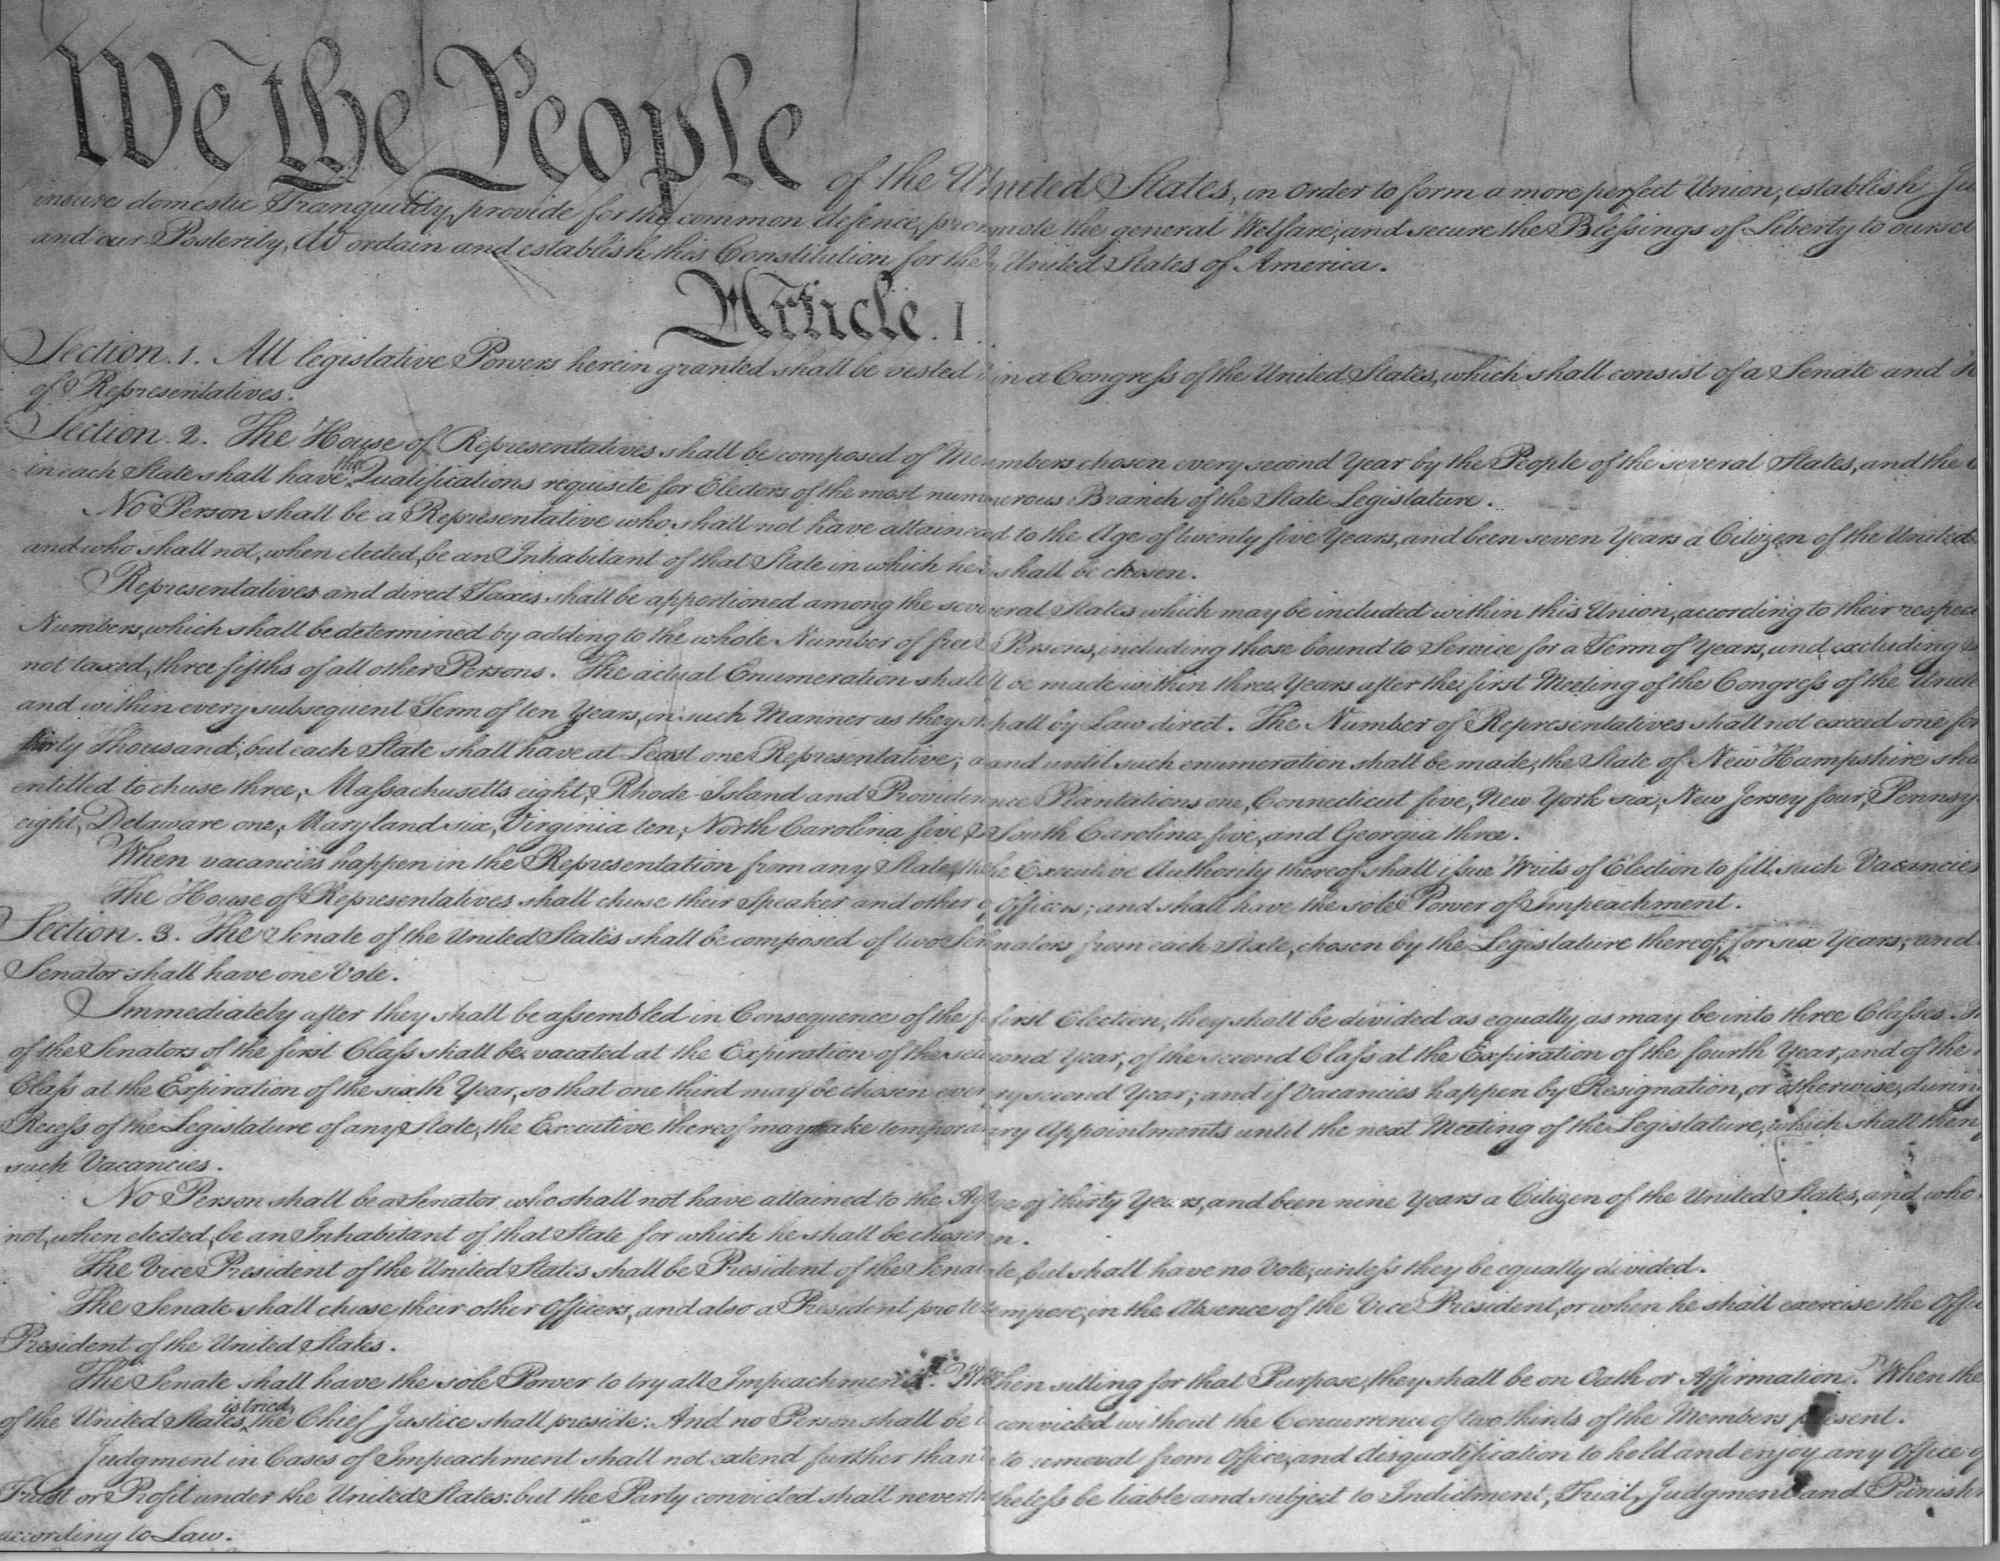 We the People of the United States, in Order to form a more perfect Union, establish Ju
insure domestic Tranquility, provide for the common defence, promote the general Welfare, and secure the Blessings of Liberty to oursel
and our Posterity, do ordain and establish this Constitution for the United States of America.
Article. I.
Section. 1. All legislative Powers herein granted shall be vested in a Congress of the United States, which shall consist of a Senate and H
of Representatives.
Section. 2. The House of Representatives shall be composed of Members chosen every second Year by the People of the several States, and the
in each State shall have the Qualifications requisite for Electors of the most numerous Branch of the State Legislature.
No Person shall be a Representative who shall not have attained to the Age of twenty five Years, and been seven Years a Citizen of the United
and who shall not, when elected, be an Inhabitant of that State in which he shall be chosen.
Representatives and direct Taxes shall be apportioned among the several States which may be included within this Union, according to their respec
Numbers, which shall be determined by adding to the whole Number of free Persons, including those bound to Service for a Term of Years, and excluding
not taxed, three fifths of all other Persons. The actual Enumeration shall be made within three Years after the first Meeting of the Congress of the Unite
and within every subsequent Term of ten Years, in such Manner as they shall by Law direct. The Number of Representatives shall not exceed one for
thirty Thousand, but each State shall have at Least one Representative; and until such enumeration shall be made, the State of New Hampshire sha
entitled to chuse three, Massachusetts eight, Rhode-Island and Providence Plantations one, Connecticut five, New York six, New Jersey four, Pennsy
eight, Delaware one, Maryland six, Virginia ten, North Carolina five, South Carolina five, and Georgia three.
When vacancies happen in the Representation from any State, the Executive Authority thereof shall issue Writs of Election to fill such Vacancies
The House of Representatives shall chuse their Speaker and other Officers; and shall have the sole Power of Impeachment.
Section. 3. The Senate of the United States shall be composed of two Senators from each State, chosen by the Legislature thereof, for six Years; and
Senator shall have one Vote.
Immediately after they shall be assembled in Consequence of the first Election, they shall be divided as equally as may be into three Classes.
of the Senators of the first Class shall be vacated at the Expiration of the second Year, of the second Class at the Expiration of the fourth Year, and of the
Class at the Expiration of the sixth Year, so that one third may be chosen every second Year; and if Vacancies happen by Resignation, or otherwise, during
Recess of the Legislature of any State, the Executive thereof may make temporary Appointments until the next Meeting of the Legislature, which shall then
such Vacancies.
No Person shall be a Senator who shall not have attained to the Age of thirty Years, and been nine Years a Citizen of the United States, and who
not, when elected, be an Inhabitant of that State for which he shall be chosen.
The Vice President of the United States shall be President of the Senate, but shall have no Vote, unless they be equally divided.
The Senate shall chuse their other Officers, and also a President pro tempore, in the Absence of the Vice President, or when he shall exercise the Offi
President of the United States.
The Senate shall have the sole Power to try all Impeachments. When sitting for that Purpose, they shall be on Oath or Affirmation. When the
of the United States is tried, the Chief Justice shall preside: And no Person shall be convicted without the Concurrence of two thirds of the Members present.
Judgment in Cases of Impeachment shall not extend further than to removal from Office, and disqualification to hold and enjoy any Office
Trust or Profit under the United States: but the Party convicted shall nevertheless be liable and subject to Indictment, Trial, Judgment and Punish
according to Law.